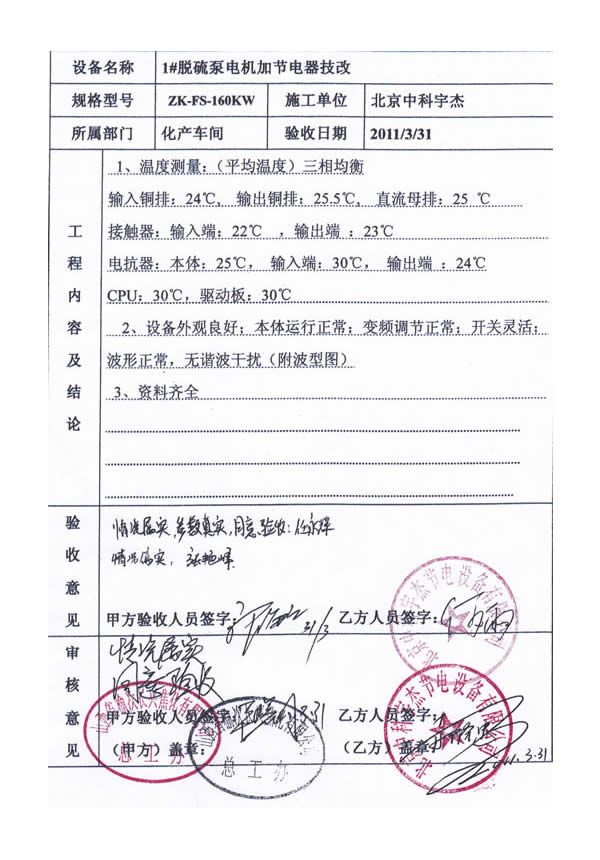 设备名称 1#脱硫泵电机加节电器技改
规格型号 ZK-FS-160KW 施工单位 北京中科宇杰
所属部门 化产车间 验收日期 2011/3/31
工程内容及结论
1、温度测量：（平均温度）三相均衡
输入铜排：24℃, 输出铜排：25.5℃, 直流母排：25 ℃
接触器：输入端：22℃ ，输出端 ：23℃
电抗器：本体：25℃, 输入端：30℃, 输出端 ：24℃
CPU：30℃，驱动板：30℃
2、设备外观良好；本体运行正常；变频调节正常；开关灵活；
波形正常，无谐波干扰（附波型图）
3、资料齐全
验收意见
情况属实，参数真实，同意验收：任永祥
情况属实，
甲方验收人员签字： 31/3 乙方人员签字：
审核意见
情况属实
同意验收
甲方验收人员签字： 3.31 乙方人员签字：
（甲方）盖章： （乙方）盖章 2011.3.31
总工办
总工办
北京中科宇杰节电设备有限公司
北京中科宇杰节电设备有限公司